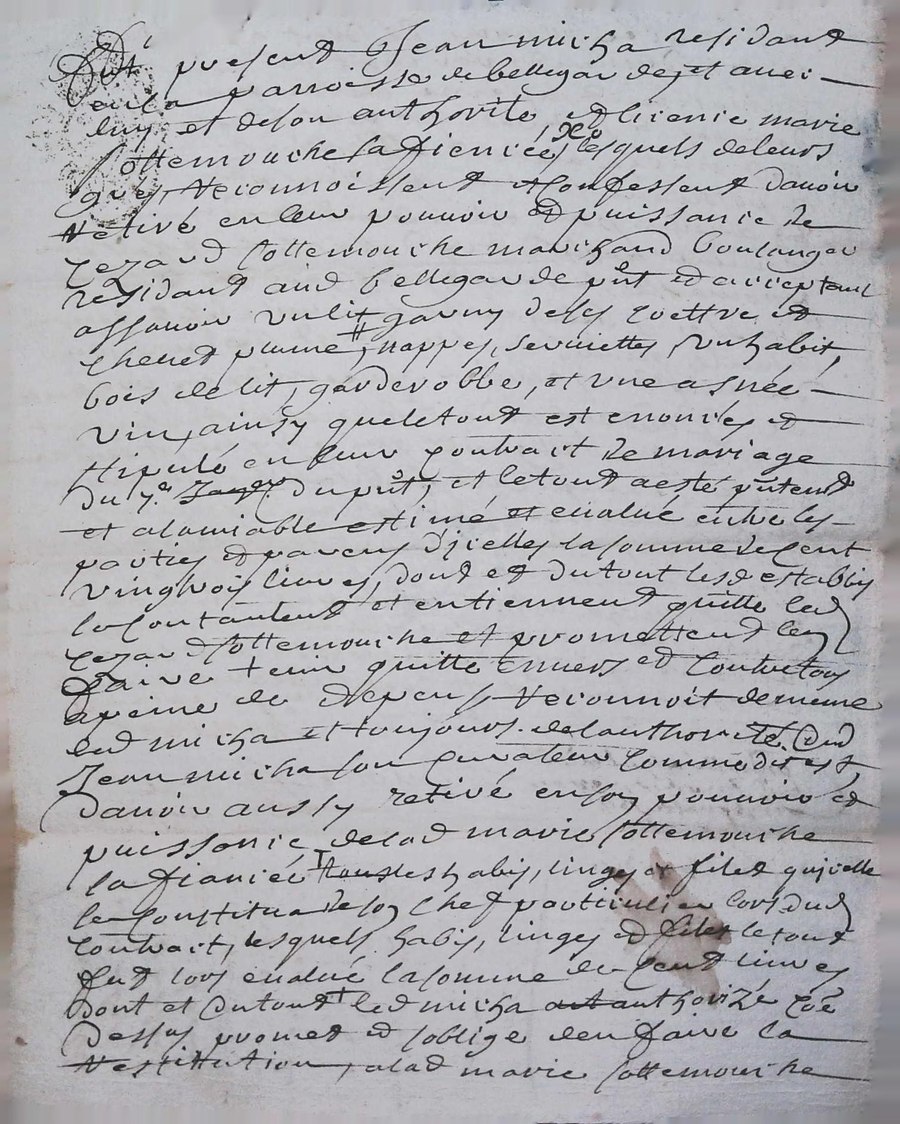 Fut present Jean micha residant
en la parroisse de bellegarde et avec
luy et de son authorité et licence marie
Sottemouche sa fiencée lesquels de leurs
grés Reconnoissent et Confessent d'avoir
Retiré en leur pouvoir et puissance de
Cezard sottemouche marchand boulanger
résidant aud bellegarde pnt et acceptant
assavoir un lit garny de sa coettre et
chevet plume, nappes, serviettes, un habit,
bois de lit, garderobbe, et une asnée
vin, ainsy que le tout est enoncés et
stipulé en leur contrait de mariage
du 7e du pnt, et le tout a esté pntemt
et alamiable estimé et evalué entre les
parties et parens d'icelles la somme de Cent
vingtrois livres, dont et du tout lesd establis
se Contantent et en tiennent quitte led
Cezard sottemouche et promettent len
faire tenir quitte envers et Contre tous
a peine de depens Reconnoit de meme
led micha et toujours de lauthorité dud
Jean micha son Curateur Comme dit est
davoir aussy retiré en son pouvoir et
puissance de lad marie sottemouche
sa fiancée tous les habis, linges et filet quicelle
se Constitua de son Chef particulier lors dud
Contrait, lesquels habis, linges et filet le tout
fut lors evalué la somme de Cent livres
Dont et du tout led micha authorizé Coe
Dessus promet et soblige den faire la
Restitution a lad marie sottemouche